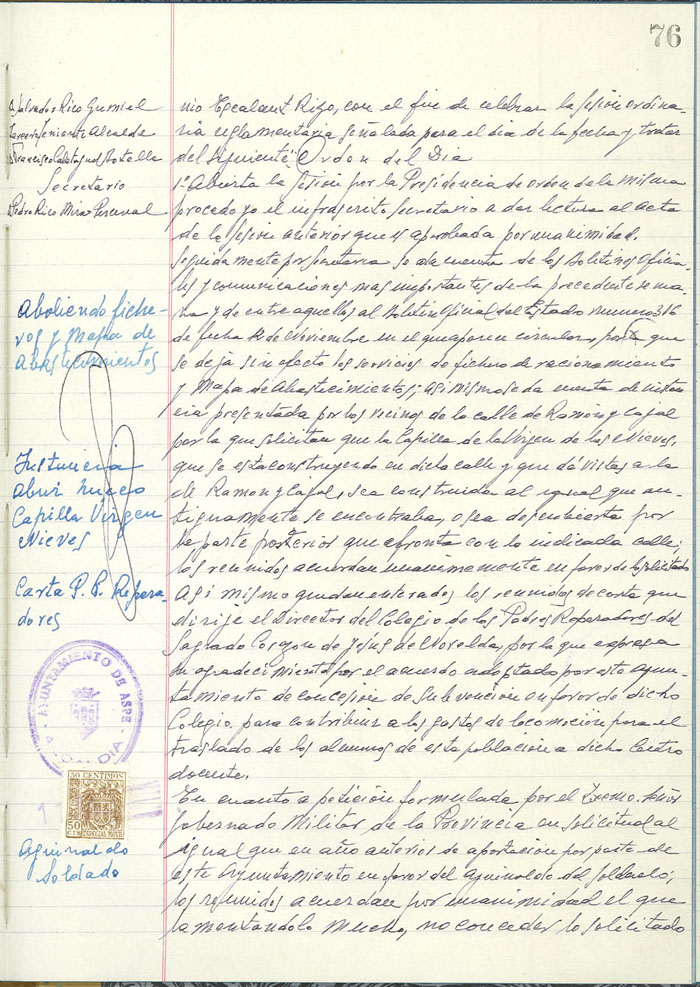 76
D. Salvador Rico Gumiel
Tercer Teniente Alcalde
D. Francisco Calatayud Botella
Secretario
Pedro Rico Mira-Perceval
Aboliendo fiche-
ros y Mapa de
Abastecimientos
Instancia
abrir hueco
Capilla Virgen
Nieves
Carta P. P. Repara-
dores
AYUNTAMIENTO DE ASPE
ALCALDIA
50 CENTIMOS
50
ESPECIAL MOVIL
Aguinaldo
Soldado
nio Escalant Rizo, con el fin de celebrar la sesión ordina-
ria reglamentaria señalada para el dia de la fecha y tratar
del siguiente: Orden del Dia
1º Abierta la sesión por la Presidencia de orden de la misma
procedo yo el infrascrito Secretario a dar lectura al acta
de la sesión anterior que es aprobada por unanimidad.
Seguidamente por Secretaria se da cuenta de los Boletines Oficia-
les y comunicaciones mas importantes de la precedente sema-
na y de entre aquellos al Boletin Oficial del Estado numero 316
de fecha de Noviembre en el que aparece circular, por la que
se deja sin efecto los servicios de fichero de racionamiento
y Mapa de Abastecimientos; asi mismo se da cuenta de instan-
cia presentada por los vecinos de la calle de Ramón y Cajal
por la que solicitan que la Capilla de la Virgen de las Nieves,
que se esta construyendo en dicha calle y que dá vistas a la
de Ramon y Cajal, sea construida al igual que an-
tiguamente se encontraba, o sea descubierta por
la parte posterior que afronta con la indicada calle;
los reunidos acuerdan unanimemente en favor de lo solicitado
Asi mismo quedan enterados los reunidos de carta que
dirije el Director del Colegio de los Padres Reparadores del
Sagrado Corazon de Jesus de Novelda, por la que expresa
su agradecimiento por el acuerdo adoptado por este ayun-
tamiento de concesión de subvención en favor de dicho
Colegio, para contribuir a los gastos de locomoción para el
traslado de los alumnos de esta población a dicho Centro
docente.
En cuanto a petición formulada por el Excmo. Señor
Gobernador Militar de la Provincia en solicitud al
igual que en año anterior de aportación por parte de
este Ayuntamiento en favor del aguinaldo del soldado;
los reunidos acuerdan por unanimidad el que
lamentandolo mucho, no conceder lo solicitado